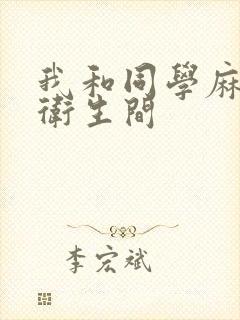 我和同學麻
衛生間
李宏斌